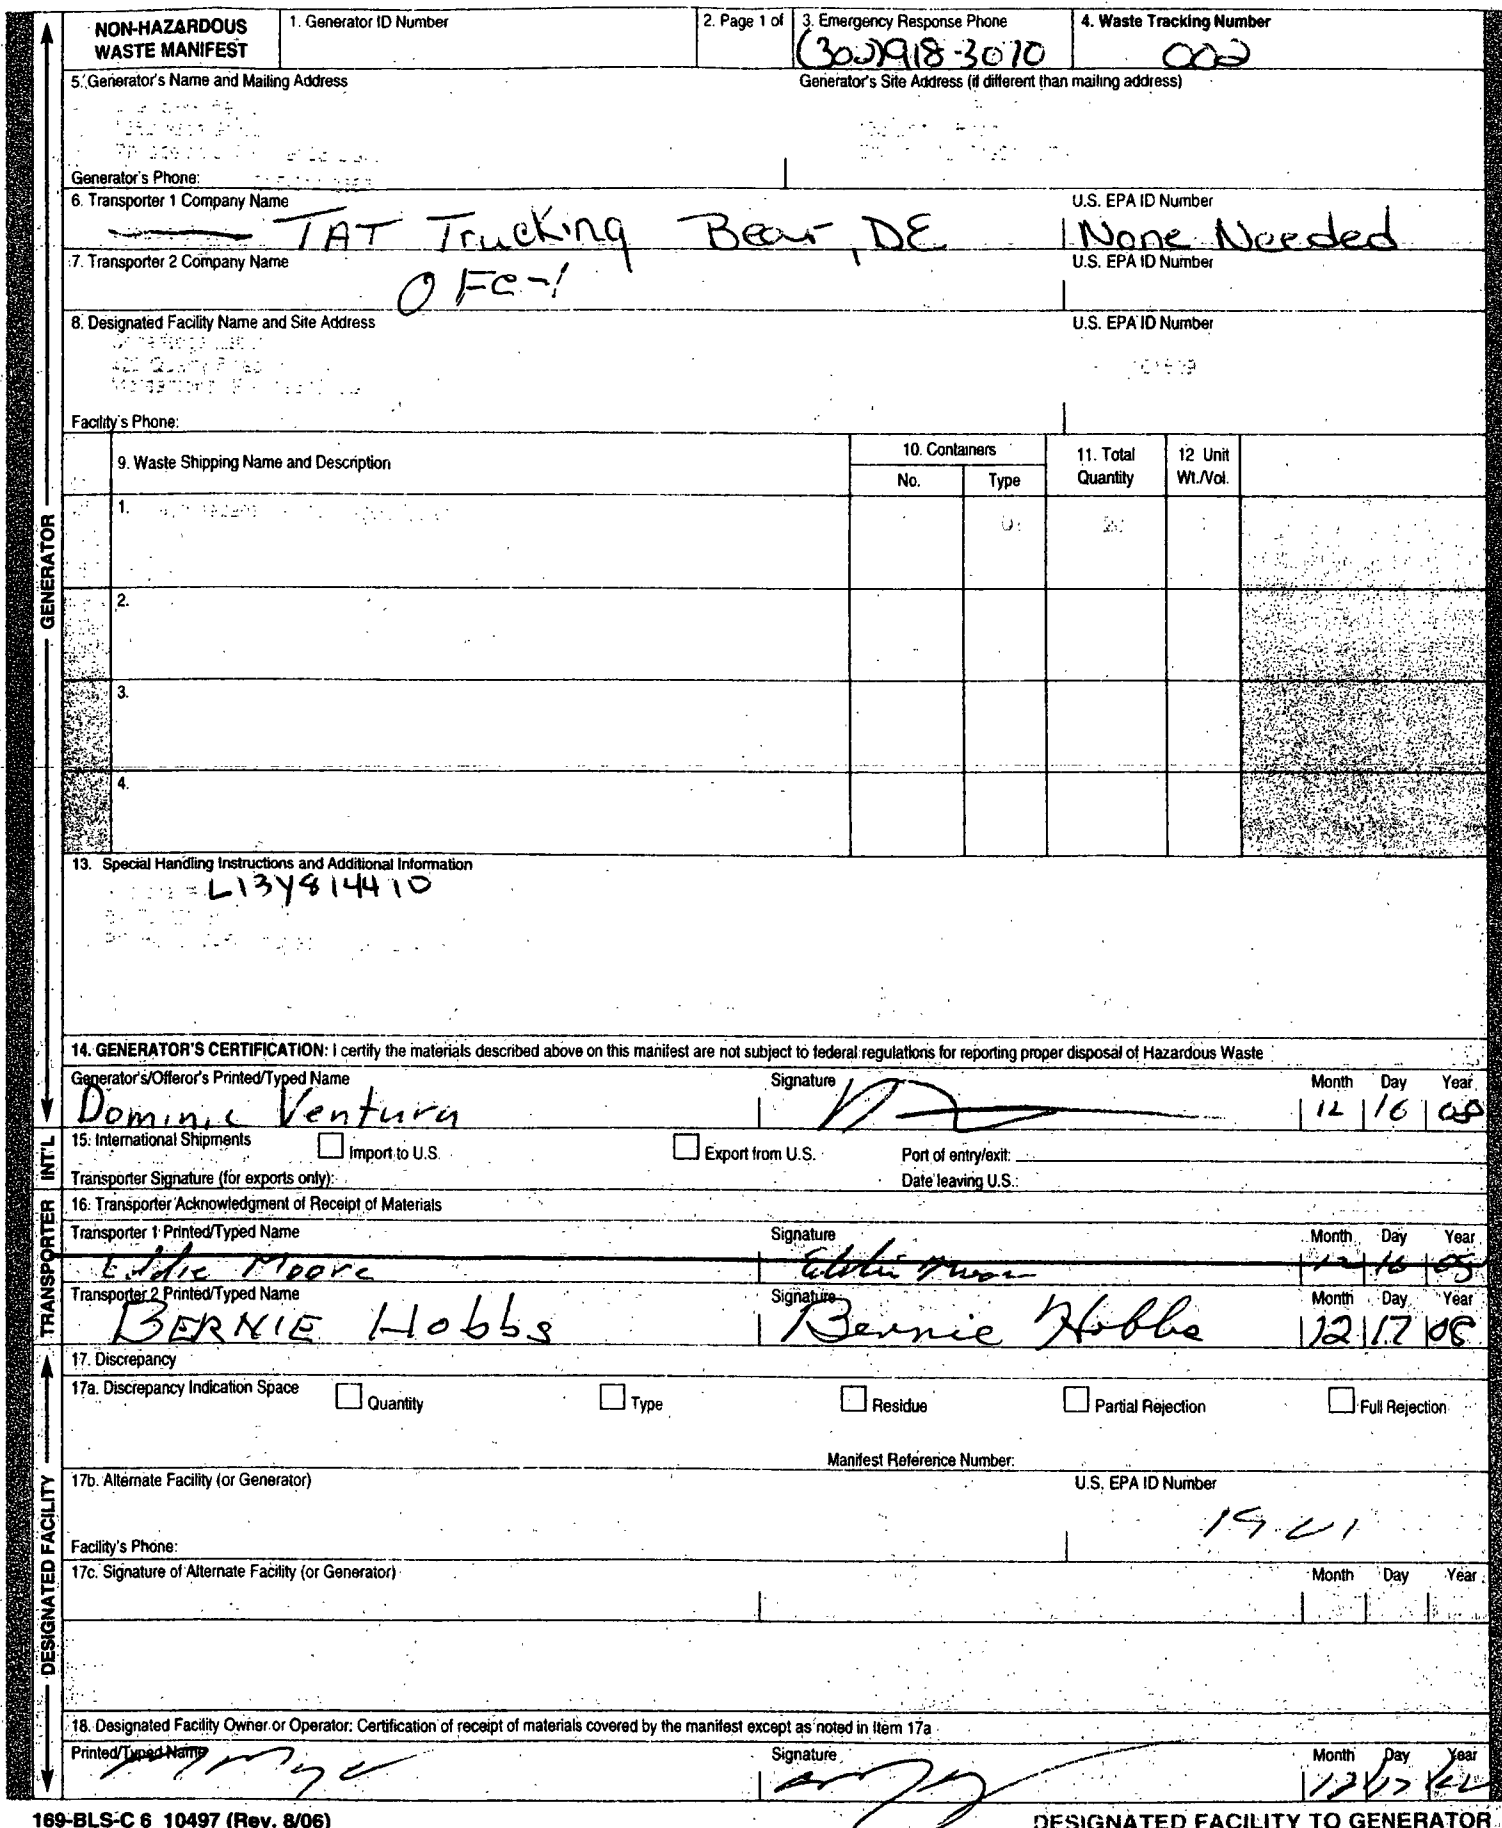 NON-HAZARDOUS WASTE MANIFEST
1. Generator ID Number
2. Page 1 of
3. Emergency Response Phone
(302)918-3070
4. Waste Tracking Number
002
5. Generator's Name and Mailing Address
Generator's Site Address (if different than mailing address)
Generator's Phone:
6. Transporter 1 Company Name
U.S. EPA ID Number
TAT Trucking Bear, DE
None Needed
7. Transporter 2 Company Name
U.S. EPA ID Number
8. Designated Facility Name and Site Address
U.S. EPA ID Number
Facility's Phone:
9. Waste Shipping Name and Description
10. Containers
No.
Type
11. Total Quantity
12 Unit Wt./Vol.
1.
2.
3.
4.
GENERATOR
13. Special Handling Instructions and Additional Information
L13Y814410
14. GENERATOR'S CERTIFICATION: I certify the materials described above on this manifest are not subject to federal regulations for reporting proper disposal of Hazardous Waste
Generator's/Offeror's Printed/Typed Name
Signature
Month Day Year
Dominic Ventura
12 16 08
INT'L
15. International Shipments
Import to U.S.
Export from U.S.
Port of entry/exit:
Transporter Signature (for exports only):
Date leaving U.S.:
TRANSPORTER
16. Transporter Acknowledgment of Receipt of Materials
Transporter 1 Printed/Typed Name
Signature
Month Day Year
Eddie Moore
Eddie Moore
12 16 08
Transporter 2 Printed/Typed Name
Signature
Month Day Year
BERNIE Hobbs
Bernie Hobbs
12 17 08
DESIGNATED FACILITY
17. Discrepancy
17a. Discrepancy Indication Space
Quantity
Type
Residue
Partial Rejection
Full Rejection
Manifest Reference Number:
17b. Alternate Facility (or Generator)
U.S. EPA ID Number
Facility's Phone:
17c. Signature of Alternate Facility (or Generator)
Month Day Year
18. Designated Facility Owner or Operator: Certification of receipt of materials covered by the manifest except as noted in Item 17a
Printed/Typed Name
Signature
Month Day Year
12 17
169-BLS-C 6 10497 (Rev. 8/06)
DESIGNATED FACILITY TO GENERATOR